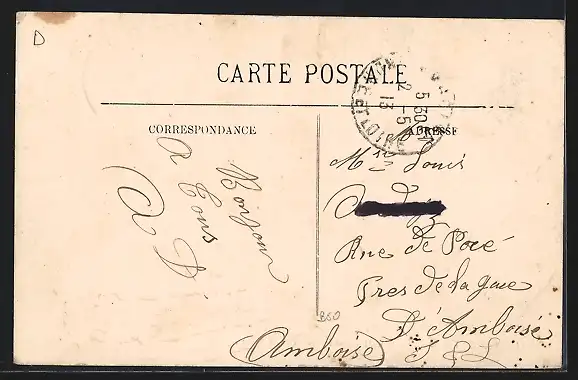 D
CARTE POSTALE
CORRESPONDANCE
ADRESSE
5 30
2 -5
13
ET LOIRE
Bonjour
A Tous
A D
Louis
Rue de Pocé
Pres de la gare
D'Amboise
I & L
(Amboise)
850